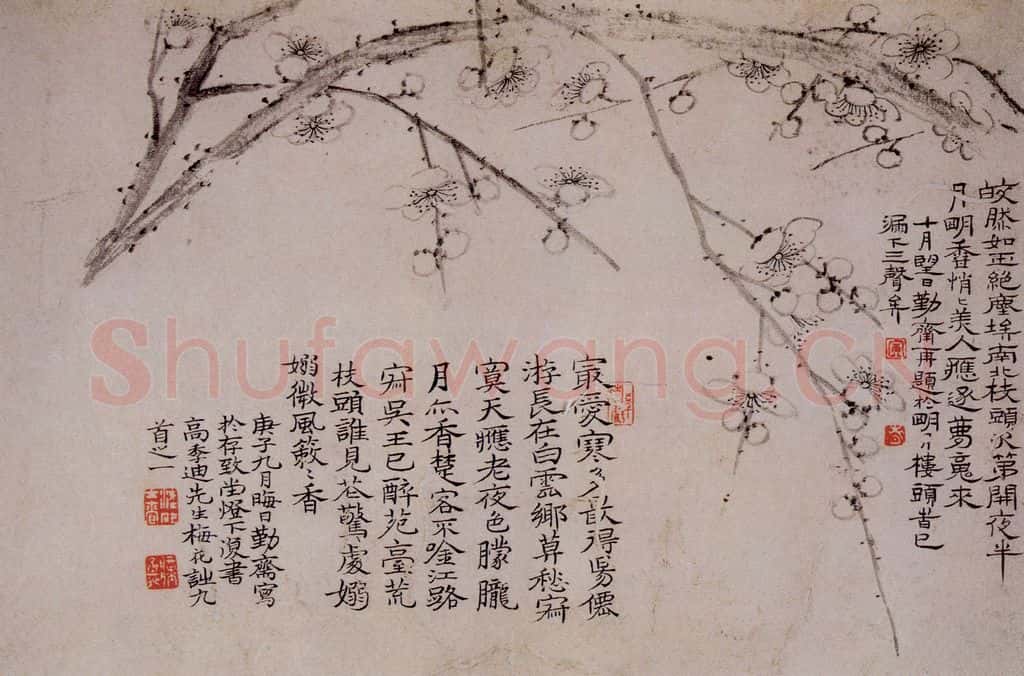 皎然如玉絕塵埃南北枝頭次第開夜半
只明香悄〻美人應逐夢魂來
十月望日勤齋再題於明月樓頭昔已
漏下三聲矣
最愛寒多最得陽僊
游長在白雲鄉萅愁寂
寞天應老夜色朦朧
月亦香楚客不唫江路
寂吳王已醉苑臺荒
枝頭誰見花驚處嫋
嫋微風簌〻香
庚子九月晦日勤齋寫
於存致堂燈下復書
高季迪先生梅花詠九
首之一
Shufawang.CN